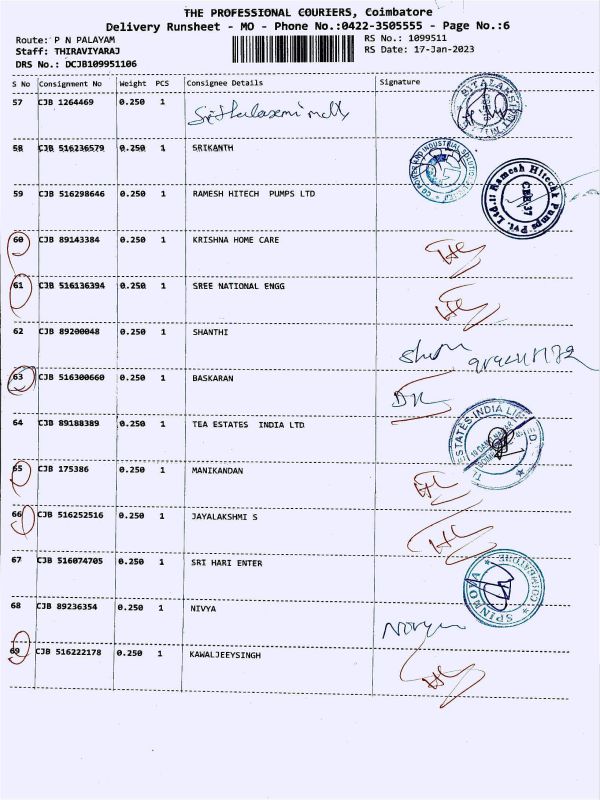 THE PROFESSIONAL COURIERS, Coimbatore
Delivery Runsheet - MO - Phone No.:0422-3505555 - Page No.:6
Route: P N PALAYAM
RS No.: 1099511
Staff: THIRAVIYARAJ
RS Date: 17-Jan-2023
DRS No.: DCJB109951106
S No Consignment No Weight PCS Consignee Details Signature
57 CJB 1264469 0.250 1
58 CJB 516236579 0.250 1 SRIKANTH
59 CJB 516298646 0.250 1 RAMESH HITECH PUMPS LTD
Ramesh Hitechk Pumps Pvt. Ltd.
CBE-37
60 CJB 89143384 0.250 1 KRISHNA HOME CARE
61 CJB 516136394 0.250 1 SREE NATIONAL ENGG
62 CJB 89200048 0.250 1 SHANTHI
63 CJB 516300660 0.250 1 BASKARAN
64 CJB 89188389 0.250 1 TEA ESTATES INDIA LTD
65 CJB 175386 0.250 1 MANIKANDAN
66 CJB 516252516 0.250 1 JAYALAKSHMI S
67 CJB 516074705 0.250 1 SRI HARI ENTER
COIMBATORE
68 CJB 89236354 0.250 1 NIVYA
69 CJB 516222178 0.250 1 KAWALJEEYSINGH